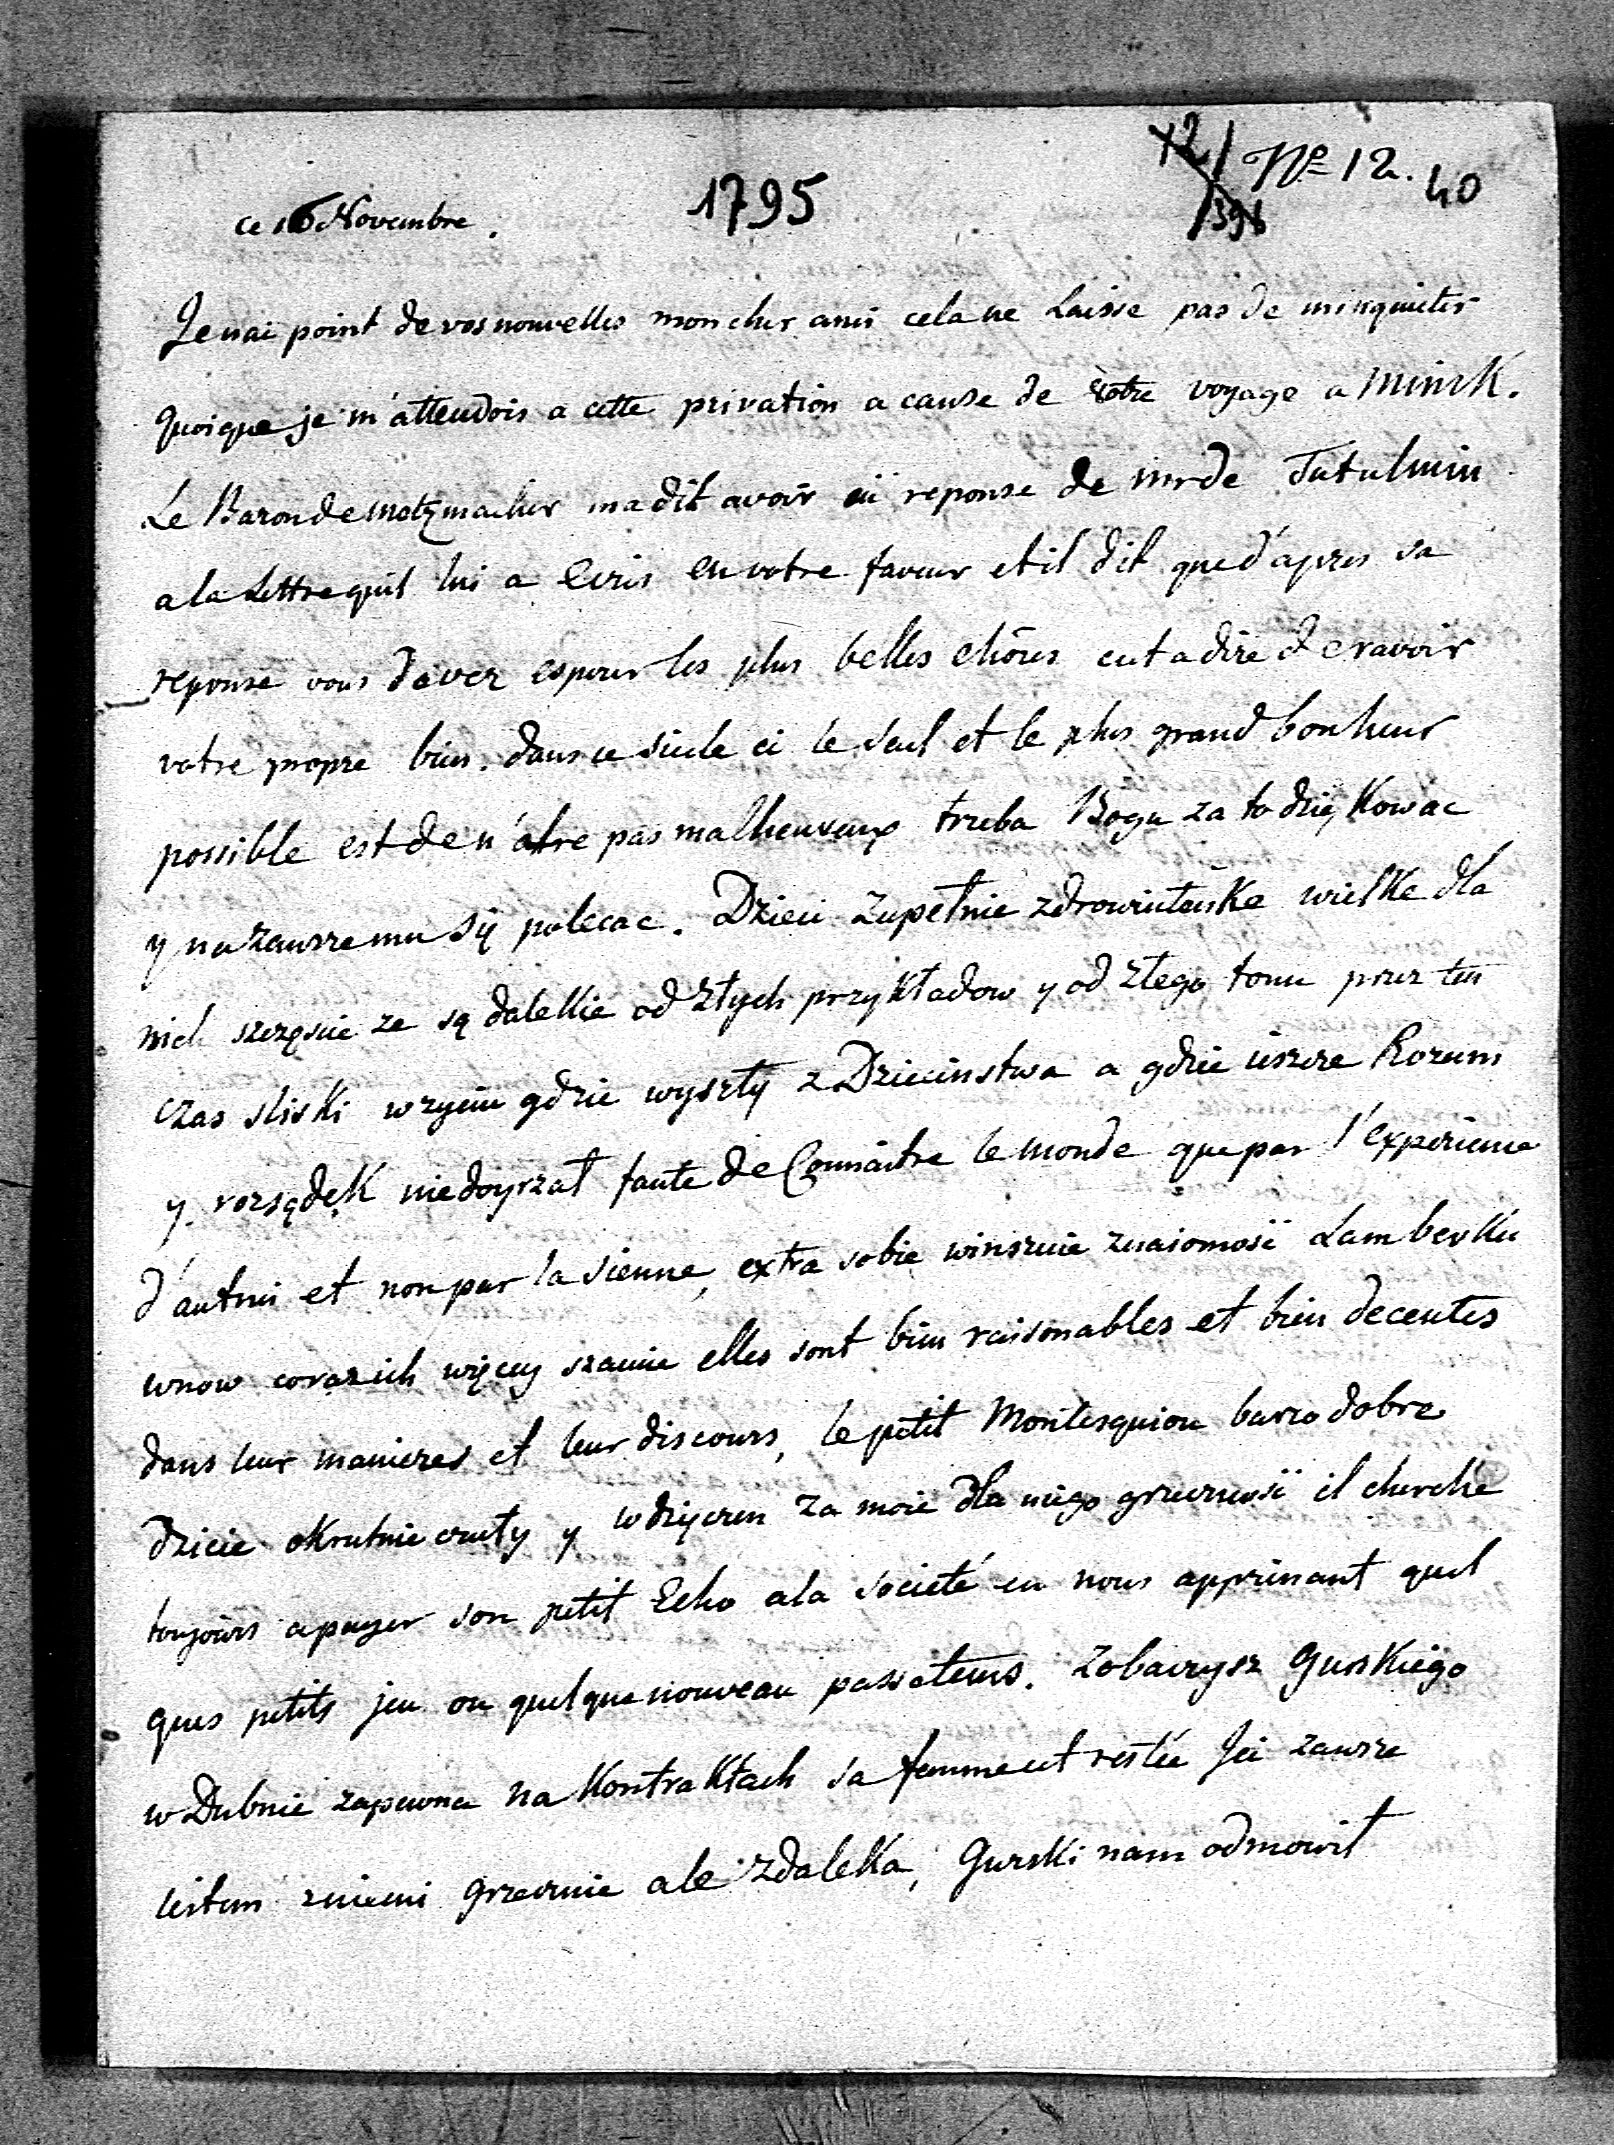 12/398 № 12. 40
1795
ce 16 Novembre.
Je nai point de vos nouvelles mon cher ami cela ne laisse pas de minquieter
quoique je m'attendois a cette privation a cause de votre voyage a Minsk.
Le Baron de Metzmacher ma dit avoir eü reponse de mr de Tutulmin
a la lettre quil lui a ecris en votre faveur et il dit que d'apres sa
reponse vous devez esperer les plus belles choses cest a dire de ravoir
votre propre bien. dans ce siecle ci le seul et le plus grand bonheur
possible est de n'etre pas malheureux trzeba Bogu za to dziękowac
y na zawsze mu się polecac. Dzieci zupełnie zdrowiuteńke wielke dla
nich szczęscie ze są dalekie od złych przykładow y od złego tonu przez ten
czas sliski w zyciu gdzie wyszły z Dzieciństwa a gdzie ieszcze Rozum
y. rozsądęk niedoyrzał faute de Connaitre le monde que par l'experience
d'autrui et non par la sienne, extra sobie winszuie znaiomosci Lamberku
wnow coraz ich więcey szacuie elles sont bien raisonables et bien decentes
dans leur manieres et leur discours, le petit Montesquiou barzo dobre
dziecie okrutnie czuły y wdzięczen za moie dla niego grzecznosci il cherche
toujours a payer son petit Echo a la societé en nous apprenant quel
ques petits jeu ou quelque nouveau passetems. zobaczysz Gurskiego
w Dubnie zapewne na Kontraktach sa femme est restée Jci zawsze
iestem zniemi grzecznie ale zdaleka, Gurski nam odmowił